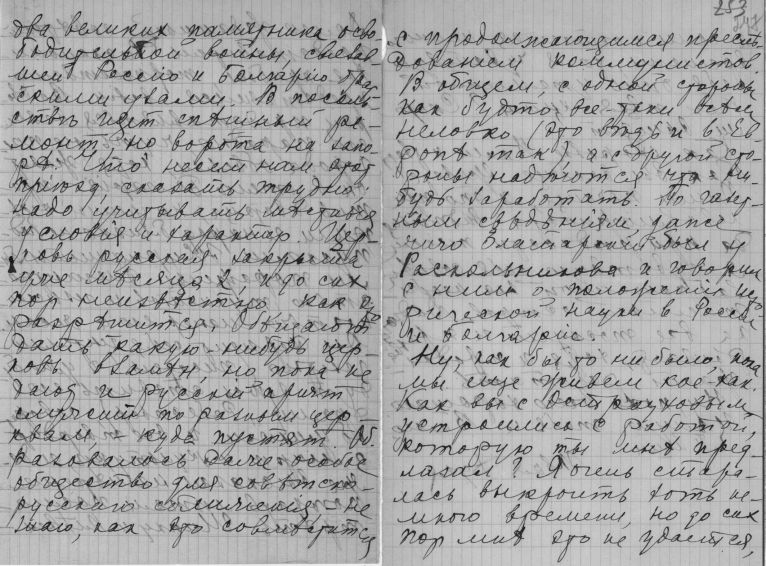 два великих памятника осво-
бодительной войны, связав-
шей Россию и Болгарию брат-
скими узами. В посоль-
ствѣ идет спѣшный ре-
монт, но ворота на запо-
рѣ. Что несет нам этот
приход, сказать трудно:
надо учитывать мѣстныя
условия и характер. Цер-
ковь русская закрыта
уже мѣсяца 2, и до сих
пор неизвѣстно как это
разрѣшится. Обѣщалось
дать какую-нибудь цер-
ковь взамѣн, но пока не
дают и русский причт
служит по разным цер-
квам - куда пустят. Об-
разовалось даже особое
общество для совѣтско-
русскаго сближения. Не
знаю, как это совмѣстится
253
с продолжающимся преслѣ-
дованием коммунистов.
В общем с одной стороны
как будто все-таки всѣм
неловко (это вѣдь и в Ев-
ропѣ так), а с другой сто-
роны надѣются что-ни-
будь заработать. По газет-
ным свѣдѣниям, даже
чичо Златарский был у
Раскольникова и говорил
с ним о положении исто-
рической науки в России
и Болгарии.
Ну, как бы то ни было, пока
мы еще живем кое-как.
Как вы с Острауховым
устроились с работой,
которую ты мнѣ пред-
лагал? Я очень стара-
лась выкроить хоть не-
много времени, но до сих
пор мнѣ это не удается,